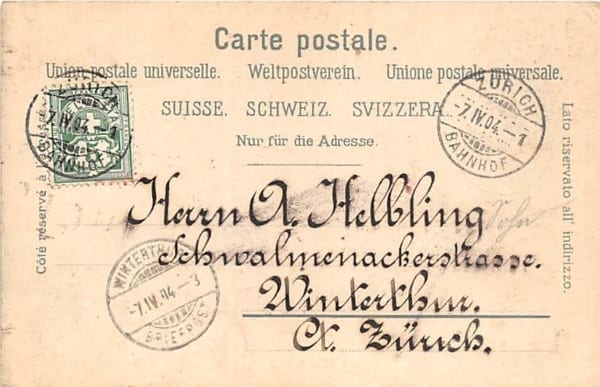 Carte postale.
Union postale universelle. Weltpostverein. Unione postale universale.
SUISSE. SCHWEIZ. SVIZZERA
Nur für die Adresse.
Côté réservé à
Lato riservato all' indirizzo.
ZÜRICH
-7.IV.04.-1
BAHNHOF
ZÜRICH
-7.IV.04.-1
BAHNHOF
Herrn A. Helbling
Sohn
Schwalmenackerstrasse.
Winterthur.
Ct. Zürich.
WINTERTHUR
-7.IV.04-3
BRIEFDIST